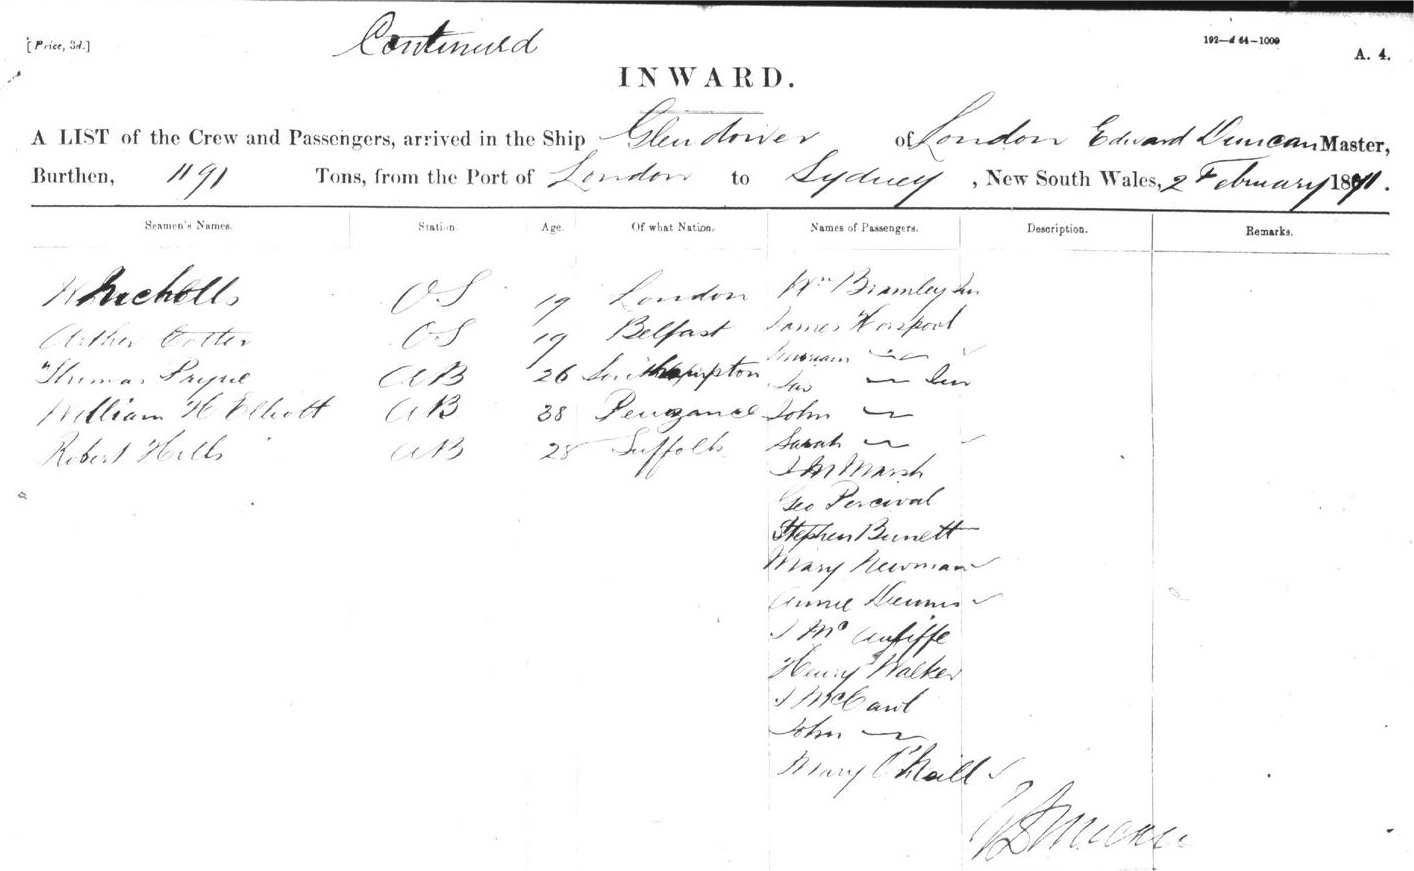 [Price, 3d.]
Continued
192—d 64—1000
A. 4.
INWARD.
A LIST of the Crew and Passengers, arrived in the Ship Glendower of London Edward Duncan Master,
Burthen, 1191 Tons, from the Port of London to Sydney, New South Wales, 2 February 1871.
Seamen's Names. Station. Age. Of what Nation. Names of Passengers. Description. Remarks.
Nicholls OS 19 London Wm Bramley Jun
Arthur Cotter OS 19 Belfast James Horspool
Thomas Pryne AB 26 Southampton
William H Elliott AB 38 Penzance
Robert Hills AB 28 Suffolk
Jas — Jun
John —
Sarah —
J M Marsh
Geo Percival
Stephen Burnett
Mary Newman
Annie Dennis
J McAuliffe
Henry Walker
J McCard
John —
Mary O'Neill
E Duncan